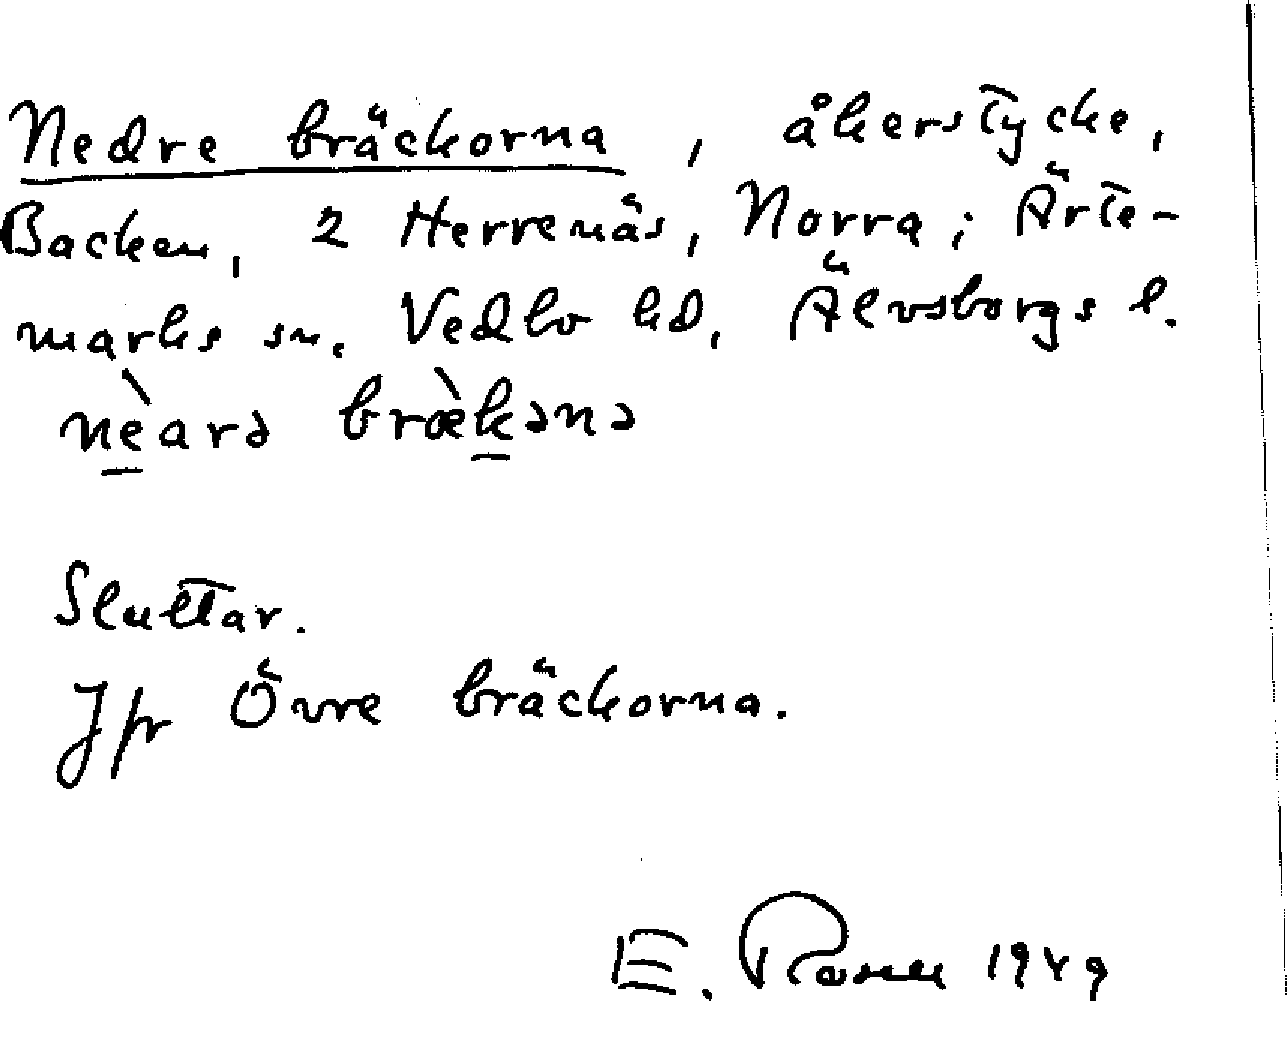 Nedre bräckorna, åkerstycke,
Backen, 2 Herrenäs, Norra; Ärte-
marks sn. Vedbo hd, Älvsborgs l.
nèarə bræ̀kənə
Sluttar.
Jfr Övre bräckorna.
E. Rosell 1949